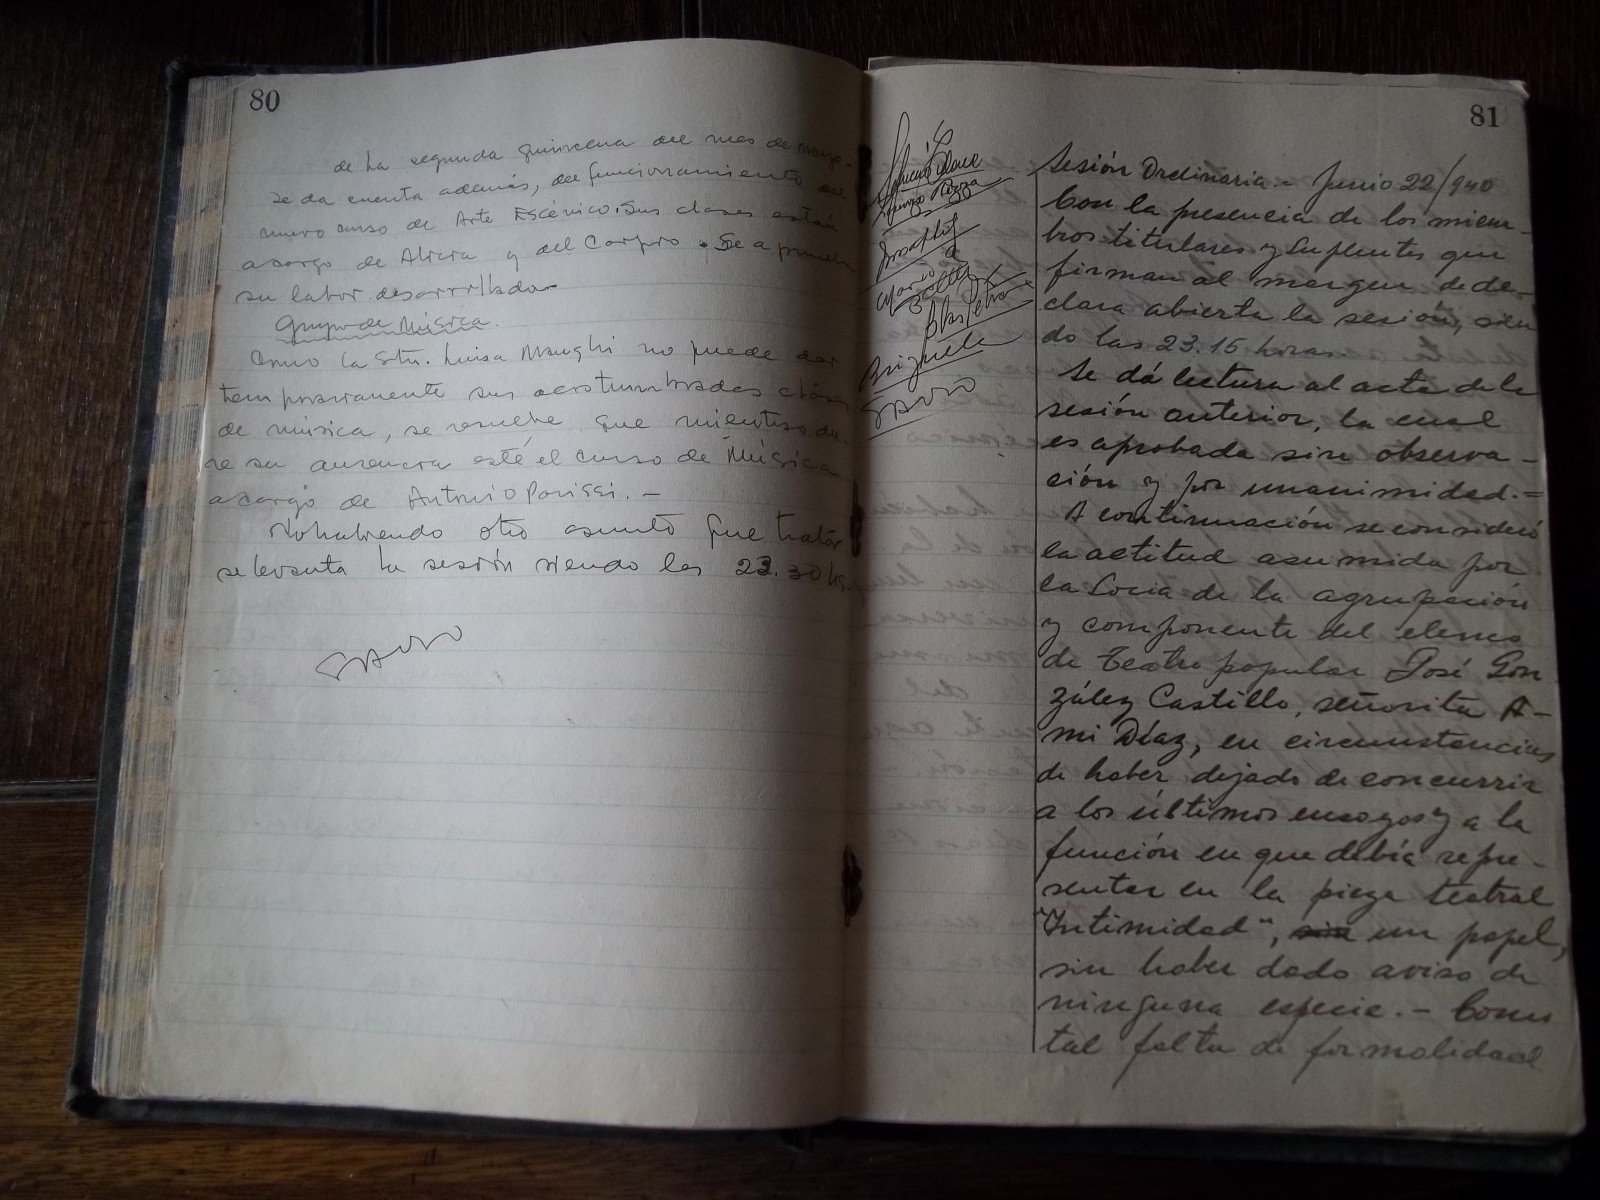 80
de la segunda quincena del mes de mayo.
Se da cuenta además, del funcionamiento del
nuevo curso de Arte Escénico. Sus clases están
a cargo de y del Carpio. Se aprueba
su labor desarrollada
Grupo de Música.
Como la Stta. Luisa Manghi no puede dar
temporariamente sus acostumbradas clases
de música, se resuelve que mientras du-
re su ausencia esté el curso de Música
a cargo de Antonio Parissi. —
No habiendo otro asunto que tratar
se levanta la sesión siendo las 23.30 hs.
81
Brizuela
Sesión Ordinaria - Junio 22/940
Con la presencia de los miem-
bros titulares y suplentes que
firman al margen de de-
clara abierta la sesión, sien
do las 23.15 horas
Se dá lectura al acta de la
sesión anterior, la cual
es aprobada sin observa-
ción y por unanimidad.=
A continuación se consideró
la actitud asumida por
la Socia de la agrupación
y componente del elenco
de teatro popular José Gon
zález Castillo, señorita A-
mi Díaz, en circunstancias
de haber dejado de concurrir
a los últimos ensayos y a la
función en que debía repre-
sentar en la pieza teatral
"Intimidad", sin un papel,
sin haber dado aviso de
ninguna especie.- Como
tal falta de formalidad